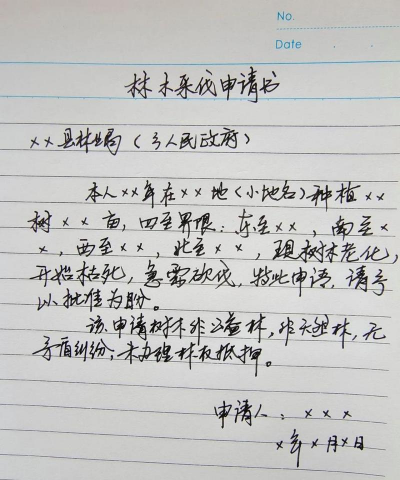 No.
Date
林木采伐申请书
××县林业局(乡人民政府)
本人××年在××地(小地名)种植××
树××亩,四至界限:东至××,南至×
×,西至××,北至××,现树木老化,
开始枯死,急需砍伐,特此申请,请予
以批准为盼。
该申请树木非公益林,非天然林,无
矛盾纠纷;未办理林权抵押。
申请人:×××
×年×月×日